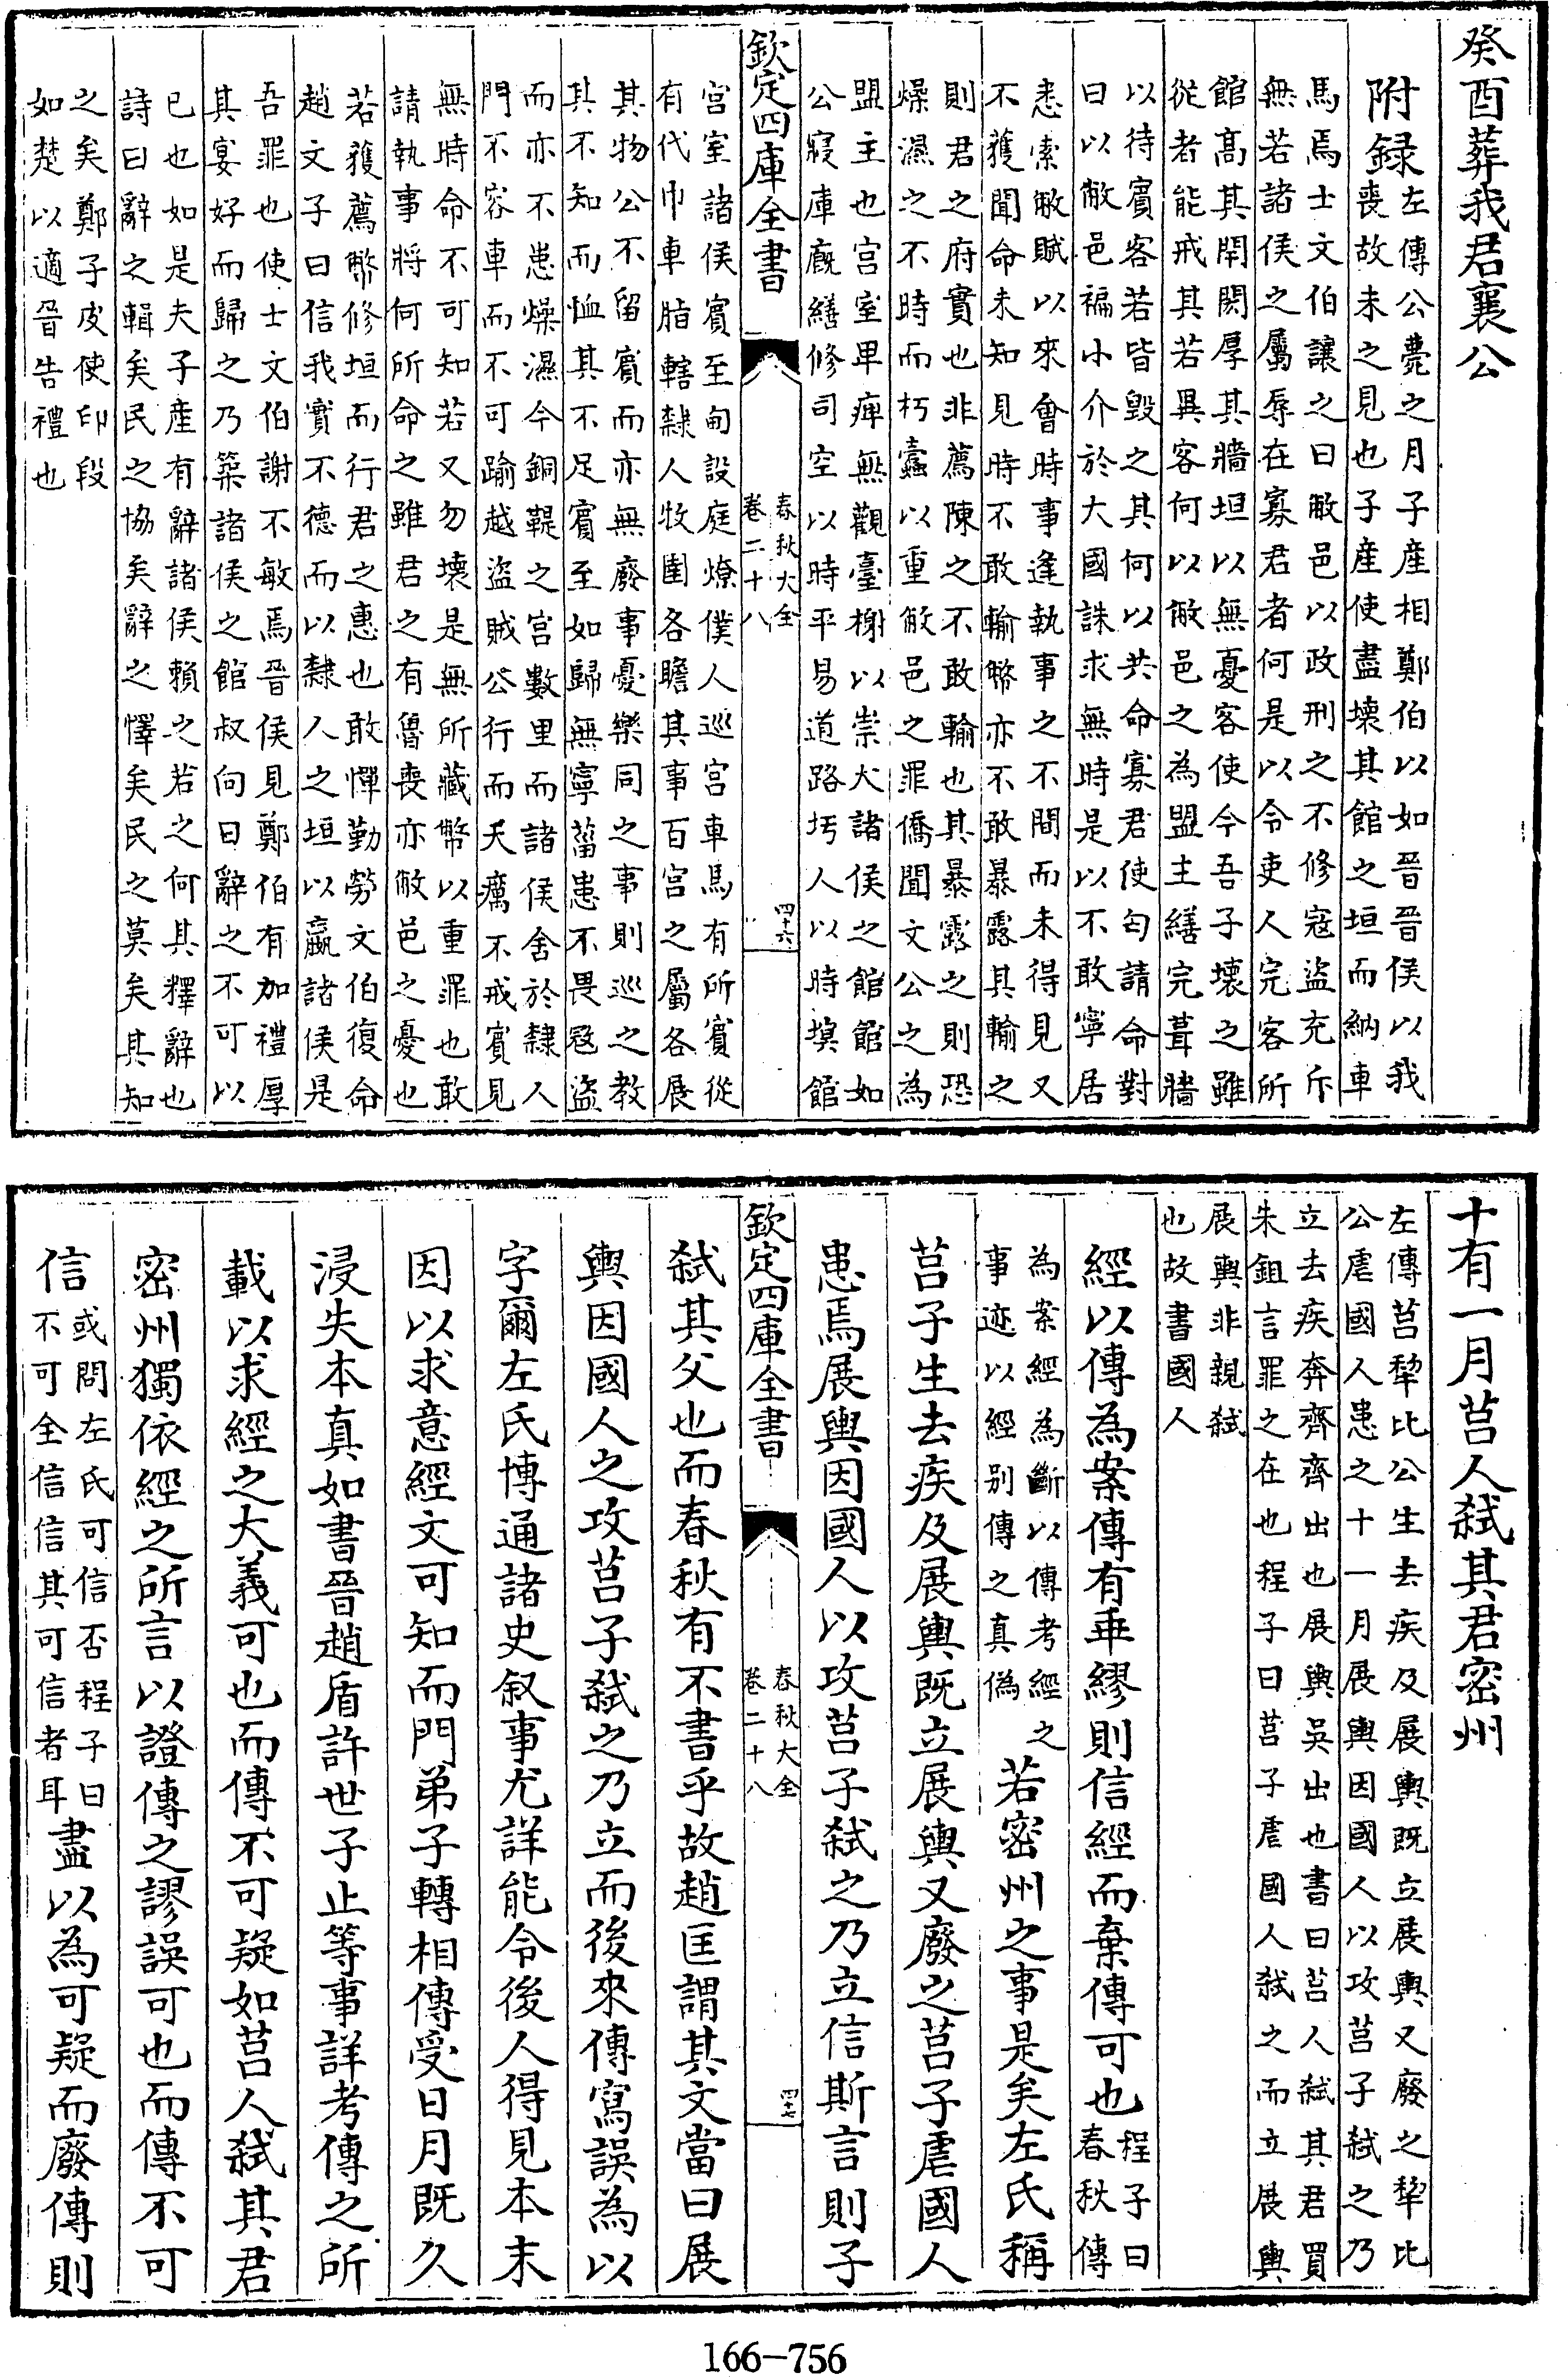 癸酉葬我君襄公
附録左傳公薨之月子產相鄭伯以如晉晉侯以我
喪故未之見也子產使盡壊其館之垣而納車
馬焉士文伯讓之曰敝邑以政刑之不修寇盜充斥
無若諸侯之屬辱在寡君者何是以令吏人完客所
館髙其閈閎厚其牆垣以無憂客使今吾子壊之雖
從者能戒其若異客何以敝邑之為盟主繕完葺牆
以待賓客若皆毀之其何以共命寡君使匄請命對
曰以敝邑褊小介於大國誅求無時是以不敢寧居
悉索敝賦以來會時事逢執事之不間而未得見又
不獲聞命未知見時不敢輸幣亦不敢暴露其輸之
則君之府實也非薦陳之不敢輸也其暴露之則恐
燥濕之不時而朽蠹以重敝邑之罪僑聞文公之為
盟主也宫室卑庳無觀臺榭以崇大諸侯之館館如
公寢庫廐繕修司空以時平易道路圬人以時塓館
欽定四庫全書
春秋大全
卷二十八
四十六
宫室諸侯賓至甸設庭燎僕人巡宫車馬有所賓從
有代巾車脂轄隸人牧圉各瞻其事百官之屬各展
其物公不留賓而亦無廢事憂樂同之事則巡之教
其不知而恤其不足賓至如歸無寧菑患不畏寇盜
而亦不患燥濕今銅鞮之宫數里而諸侯舍於隸人
門不容車而不可踰越盜賊公行而夭癘不戒賓見
無時命不可知若又勿壊是無所藏幣以重罪也敢
請執事將何所命之雖君之有魯喪亦敝邑之憂也
若獲薦幣修垣而行君之惠也敢憚勤勞文伯復命
趙文子曰信我實不德而以隸人之垣以贏諸侯是
吾罪也使士文伯謝不敏焉晉侯見鄭伯有加禮厚
其宴好而歸之乃築諸侯之館叔向曰辭之不可以
已也如是夫子產有辭諸侯賴之若之何其釋辭也
詩曰辭之輯矣民之協矣辭之懌矣民之莫矣其知
之矣鄭子皮使印段
如楚以適晉告禮也
十有一月莒人弑其君密州
左傳莒犂比公生去疾及展輿既立展輿又廢之犂比
公虐國人患之十一月展輿因國人以攻莒子弑之乃
立去疾奔齊齊出也展輿吳出也書曰莒人弑其君買
朱鉏言罪之在也程子曰莒子虐國人弑之而立展輿
展輿非親弑
也故書國人
經以傳為案傳有乖繆則信經而棄傳可也程子曰春秋傳
為案經為斷以傳考經之事迹以經别傳之真偽若密州之事是矣左氏稱
莒子生去疾及展輿既立展輿又廢之莒子虐國人
患焉展輿因國人以攻莒子弑之乃立信斯言則子
欽定四庫全書
春秋大全
卷二十八
四十七
弑其父也而春秋有不書乎故趙匡謂其文當曰展
輿因國人之攻莒子弑之乃立而後來傳寫誤為以
字爾左氏博通諸史叙事尤詳能令後人得見本末
因以求意經文可知而門弟子轉相傳受日月既久
浸失本真如書晉趙盾許世子止等事詳考傳之所
載以求經之大義可也而傳不可疑如莒人弑其君
密州獨依經之所言以證傳之謬誤可也而傳不可
信或問左氏可信否程子曰不可全信信其可信者耳盡以為可疑而廢傳則
166-756